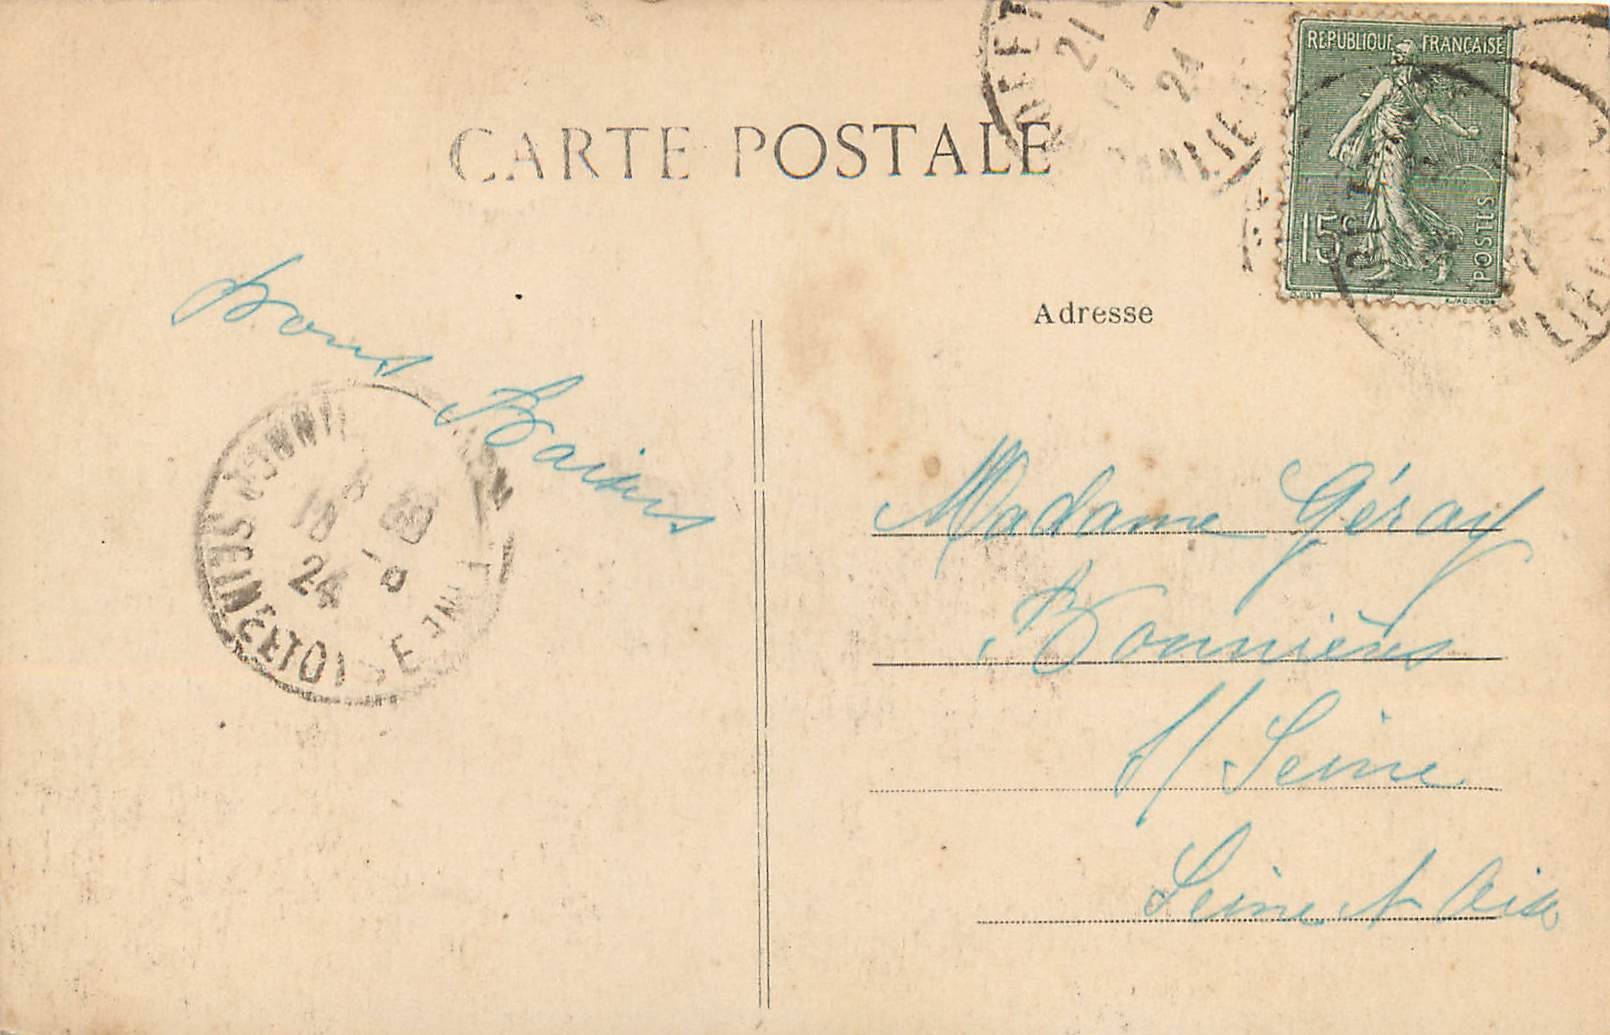 CARTE POSTALE
REPUBLIQUE FRANÇAISE
15c
POSTES
21
24
Adresse
Bons Baisers
Madame Géray
Bonnières
s/ Seine
Seine et Oise
SEINE ET OISE
24